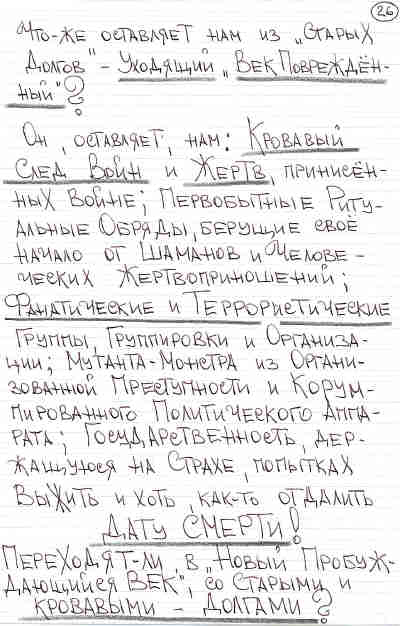 26
Что-же оставляет нам из „Старых
Долгов" – Уходящий „Век Повреждён-
ный"?
Он, оставляет, нам: Кровавый
След Войн и Жертв, принисён-
ных Войне; Первобытные Риту-
альные Обряды, берущие своё
начало от Шаманов и Челове-
ческих Жертвоприношений;
Фанатические и Террористические
Группы, Группировки и Организа-
ции; Мутанта-Монстра из Органи-
зованной Преступности и Корум-
пированного Политического Аппа-
рата; Государственность, дер-
жащуюся на Страхе, попытках
Выжить и хоть, как-то отдалить
Дату Смерти!
Переходят-ли, в „Новый Пробуж-
дающийся Век", со Старыми и
Кровавыми – Долгами?